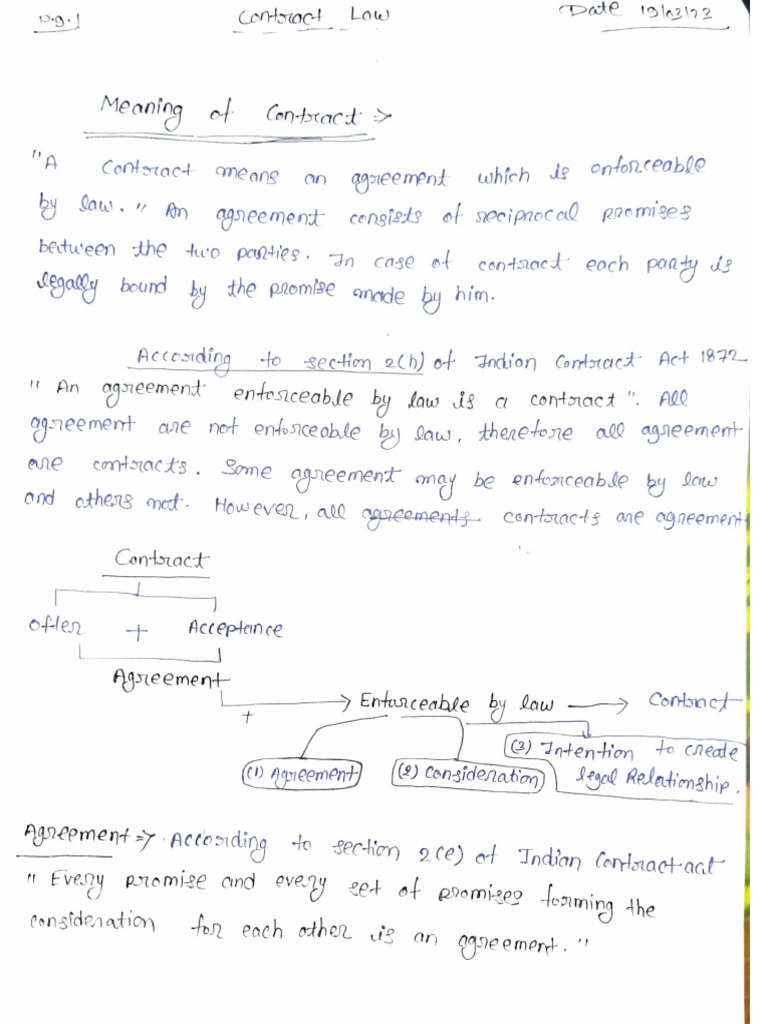 P.g.1 Contract Law Date 19/03/23
Meaning of Contract ⇒
"A Contract means an agreement which is enforceable
by law." An agreement consists of reciprocal promises
between the two parties. In case of contract each party is
legally bound by the promise made by him.
According to section 2(h) of Indian Contract Act 1872
" An agreement enforceable by law is a contract". All
agreement are not enforceable by law, therefore all agreement
are contracts. Some agreement may be enforceable by law
and others not. However, all agreements contracts are agreement
Contract
Offer + Acceptance
Agreement
+ → Enforceable by law → Contract
(1) Agreement (2) Consideration (3) Intention to create
legal Relationship.
Agreement ⇒ According to section 2(e) of Indian Contract act
" Every promise and every set of promises forming the
consideration for each other is an agreement."